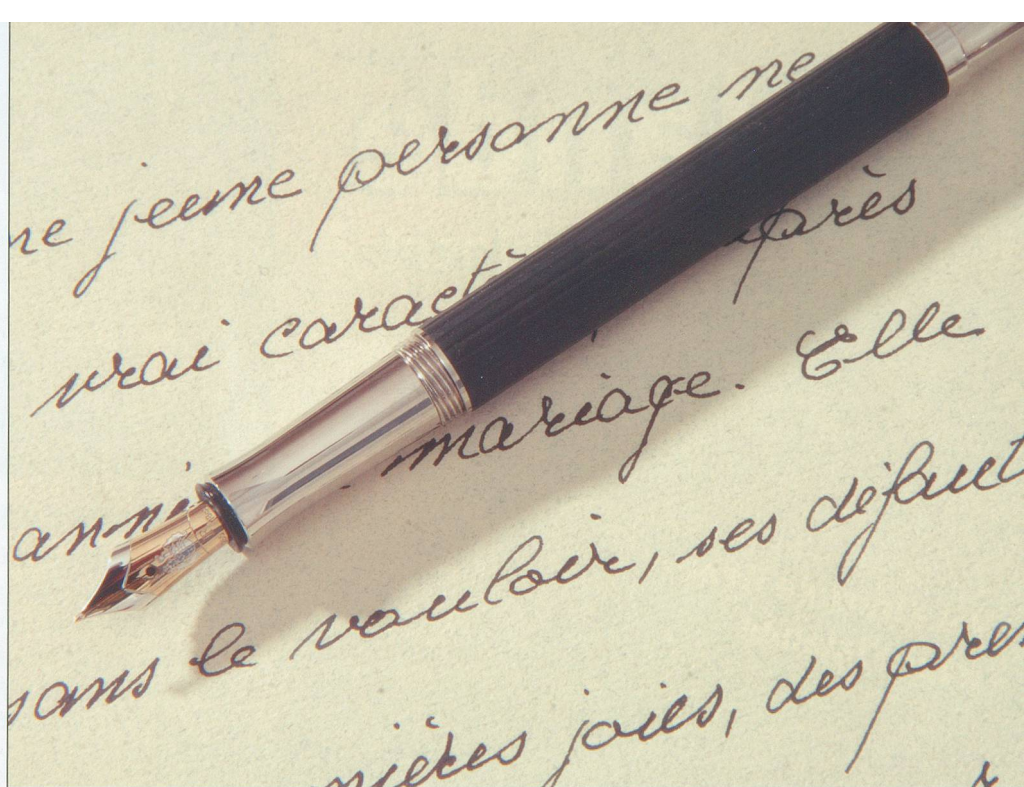 ne jeune personne ne
vrai caractè près
anni mariage. Elle
sans le vouloir, ses défaut
nières joies, des pre